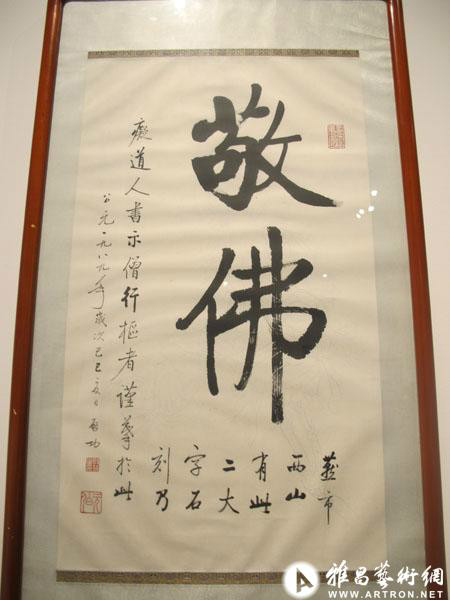 敬佛
燕市
西山
有此
二大
字石
刻乃
癡道人書示僧行樞者謹摹於此
公元一九八九年歲次己巳夏日 啟功
雅昌藝術網
WWW.ARTRON.NET